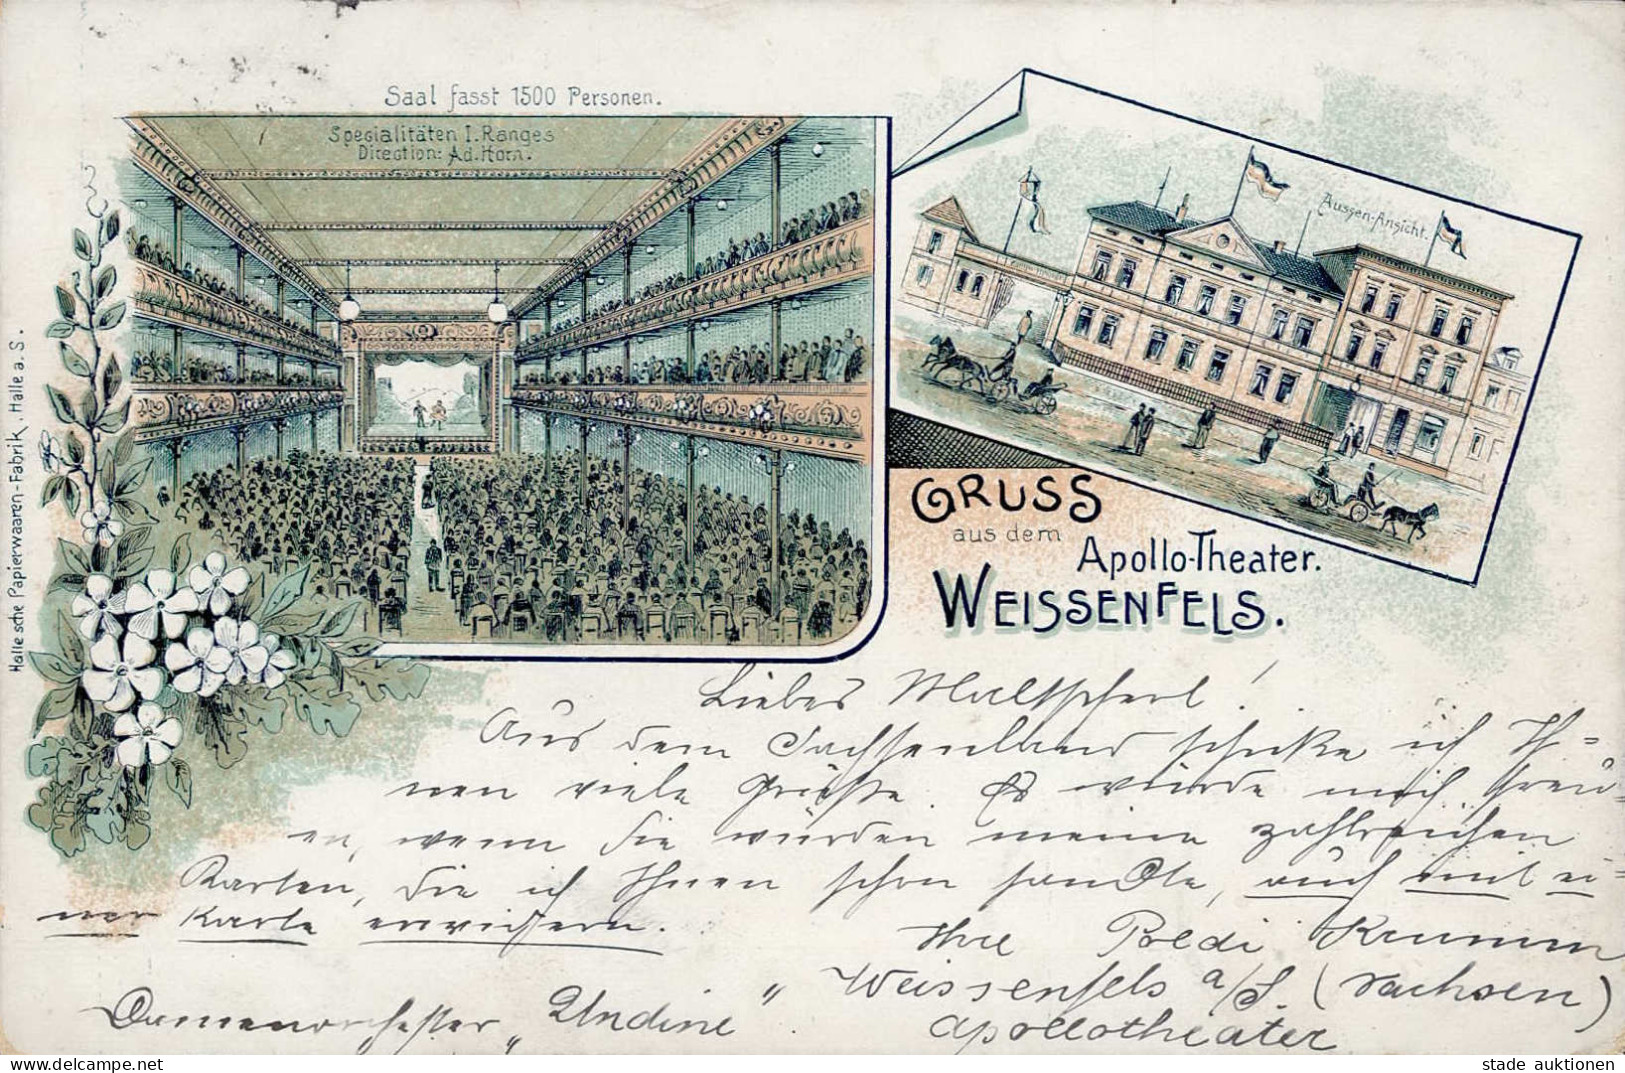 Saal fasst 1500 Personen.
Specialitäten I. Ranges
Direction: Ad. Horn.
Aussen-Ansicht.
GRUSS
aus dem
Apollo-Theater.
WEISSENFELS.
Halle'sche Papierwaaren-Fabrik, Halle a. S.
Liebes !
Aus dem Sachsenland schicke ich Ih=
nen viele Grüße. Es würde mich freu-
en, wenn Sie würden meine zahlreichen
Karten, die ich Ihnen schon sandte, auch mit ei=
ner Karte erwidern.
Ihre Poldi Krumm
Weissenfels a/S. (Sachsen)
Apollotheater
Damenorchester „Undine"
delcampe.net
stade auktionen